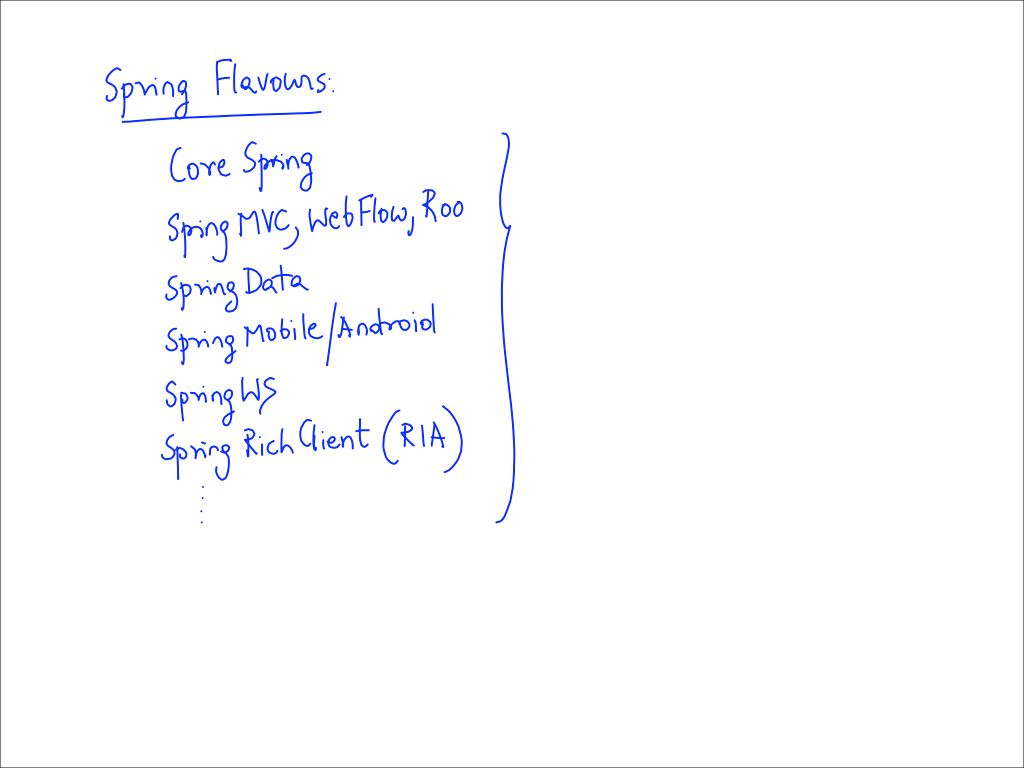 Spring Flavours:
Core Spring
Spring MVC, WebFlow, Roo
Spring Data
Spring Mobile/Android
Spring WS
Spring Rich Client (RIA)